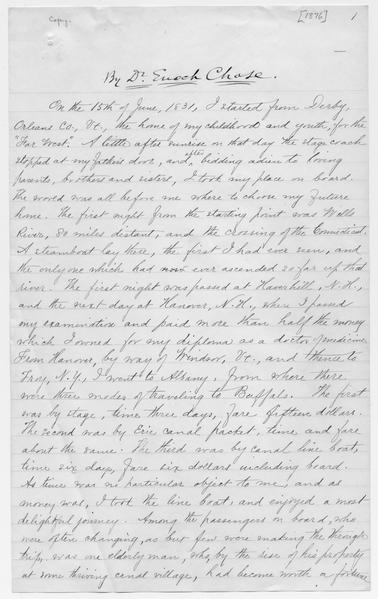 Copy.
[1876]
1
By Dr. Enoch Chase.
On the 15th of June, 1831, I started from Derby,
Orleans Co., Vt., the home of my childhood and youth, for the
"Far West." A little after sunrise on that day the stage coach
stopped at my fathers door, and, after bidding adieu to loving
parents, brothers and sisters, I took my place on board.
The world was all before me where to choose my future
home. The first night from the starting point was Wells
River, 80 miles distant, and the crossing of the Connecticut.
A steamboat lay there, the first I had ever seen, and
the only one which had ever ascended so far up that
river. The first night was passed at Haverhill, N.H.,
and the next day at Hanover, N.H., where I passed
my examination and paid more than half the money
which I owned for my diploma as a doctor of medicine.
From Hanover, by way of Windsor, Vt., and thence to
Troy, N.Y., I went to Albany, from where there
were three modes of traveling to Buffalo. The first
was by stage, time three days, fare fifteen dollars.
The second was by Erie canal packet, time and fare
about the same. The third was by canal line boat,
time six days, fare six dollars including board.
As time was no particular object to me, and as
money was, I took the line boat, and enjoyed a most
delightful journey. Among the passengers on board, who
were often changing, as but few were making the through
trip, was one elderly man, who, by the rise of his property
at some thriving canal village, had become worth a fortune